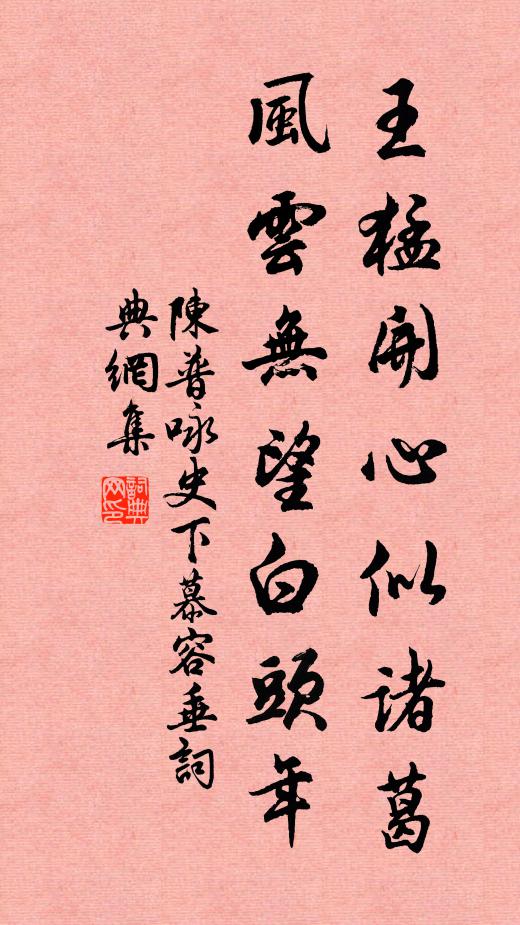 王猛開心似諸葛
風雲無望白頭年
陳普咏史下慕容垂詞
典網集
詞典网印